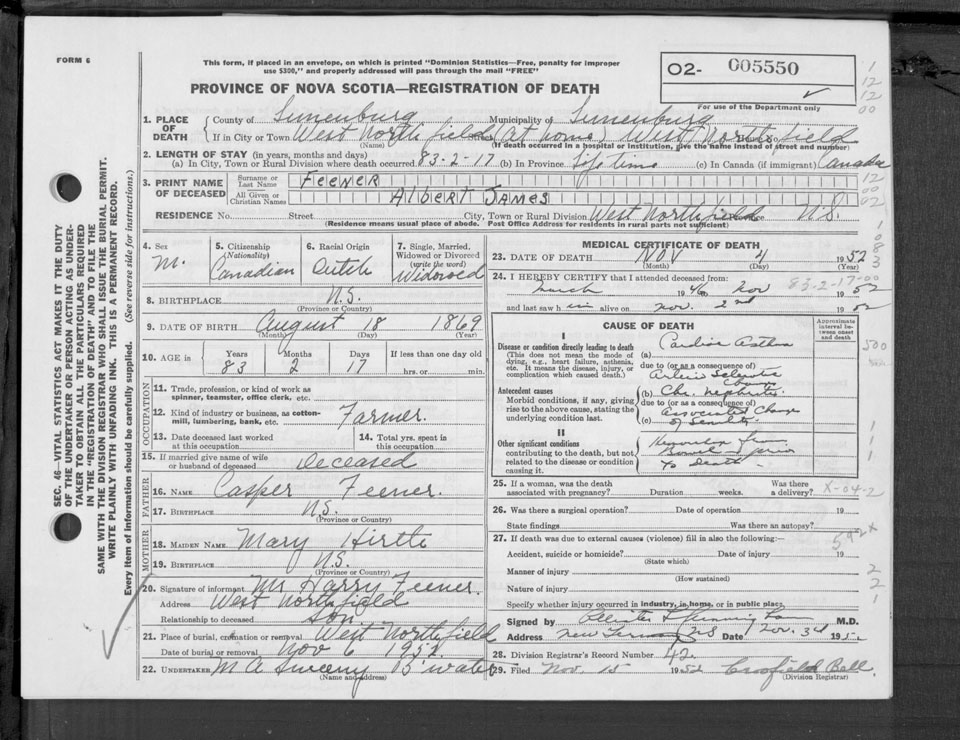 FORM 6
This form, if placed in an envelope, on which is printed "Dominion Statistics—Free, penalty for improper
use $300," and properly addressed will pass through the mail "FREE"
PROVINCE OF NOVA SCOTIA—REGISTRATION OF DEATH
02- 005550
For use of the Department only
1. PLACE OF DEATH
County of Lunenburg Municipality of Lunenburg
If in City or Town West Northfield Street (At home) West Northfield
(Name) (If death occurred in a hospital or institution, give the name instead of street and number)
2. LENGTH OF STAY (in years, months and days)
(a) In City, Town or Rural Division where death occurred 83-2-17 (b) In Province Life time (c) In Canada (if immigrant) Canada
3. PRINT NAME OF DECEASED
Surname or Last Name FEENER
All Given or Christian Names Albert James
RESIDENCE No. Street City, Town or Rural Division West Northfield N.S.
(Residence means usual place of abode. Post Office Address for residents in rural parts not sufficient)
4. Sex M.
5. Citizenship (Nationality) Canadian
6. Racial Origin Dutch
7. Single, Married, Widowed or Divorced (write the word) Widowed
8. BIRTHPLACE N.S.
(Province or Country)
9. DATE OF BIRTH August 18 1869
(Month) (Day) (Year)
10. AGE in Years 83 Months 2 Days 17 If less than one day old
hrs. or min.
OCCUPATION
11. Trade, profession, or kind of work as
spinner, teamster, office clerk, etc.
12. Kind of industry or business, as cotton-
mill, lumbering, bank, etc. Farmer.
13. Date deceased last worked
at this occupation
14. Total yrs. spent in
this occupation
15. If married give name of wife
or husband of deceased Deceased
FATHER
16. NAME Casper Feener.
17. BIRTHPLACE N.S.
(Province or Country)
MOTHER
18. MAIDEN NAME Mary Hirtle
19. BIRTHPLACE N.S.
(Province or Country)
20. Signature of informant Mr Harry Feener.
Address West Northfield
Relationship to deceased Son.
21. Place of burial, cremation or removal West Northfield
Date of burial or removal Nov 6 1952.
22. UNDERTAKER M A Sweeny B'water
(Name and address)
MEDICAL CERTIFICATE OF DEATH
23. DATE OF DEATH Nov 4 1952
(Month) (Day) (Year)
24. I HEREBY CERTIFY that I attended deceased from:
March 1946 Nov 1952
83-2-17-00
and last saw him alive on Nov. 2nd 1952
CAUSE OF DEATH
Approximate interval between onset and death
I
Disease or condition directly leading to death
(This does not mean the mode of
dying, e.g., heart failure, asthenia,
etc. It means the disease, injury, or
complication which caused death.)
(a) Cardiac Asthma
due to (or as a consequence of)
Antecedent causes
Morbid conditions, if any, giving
rise to the above cause, stating the
underlying condition last.
(b) Chr. Nephritis
due to (or as a consequence of)
Associated Changes
(c) of Senility
II
Other significant conditions
contributing to the death, but not
related to the disease or condition
causing it.
to Death
25. If a woman, was the death
associated with pregnancy? Duration weeks. Was there
a delivery? X-04-2
26. Was there a surgical operation? Date of operation 19
State findings Was there an autopsy?
27. If death was due to external causes (violence) fill in also the following:—
592X
Accident, suicide or homicide? Date of injury 19
(State which)
Manner of injury
(How sustained)
Nature of injury
Specify whether injury occurred in industry, in home, or in public place.
Signed by M.D.
Address New Germany NS Date Nov. 3d 1952
28. Division Registrar's Record Number 42
29. Filed Nov. 15 1952 Crofield Bell
(Division Registrar)
SEC. 46—VITAL STATISTICS ACT MAKES IT THE DUTY
OF THE UNDERTAKER OR PERSON ACTING AS UNDER-
TAKER TO OBTAIN ALL THE PARTICULARS REQUIRED
IN THE "REGISTRATION OF DEATH" AND TO FILE THE
SAME WITH THE DIVISION REGISTRAR WHO SHALL ISSUE THE BURIAL PERMIT.
WRITE PLAINLY WITH UNFADING INK. THIS IS A PERMANENT RECORD.
Every item of information should be carefully supplied. (See reverse side for instructions.)
1
12
12
00
12
00
02
1
0
8
3
500
1
1
1
2
2
1